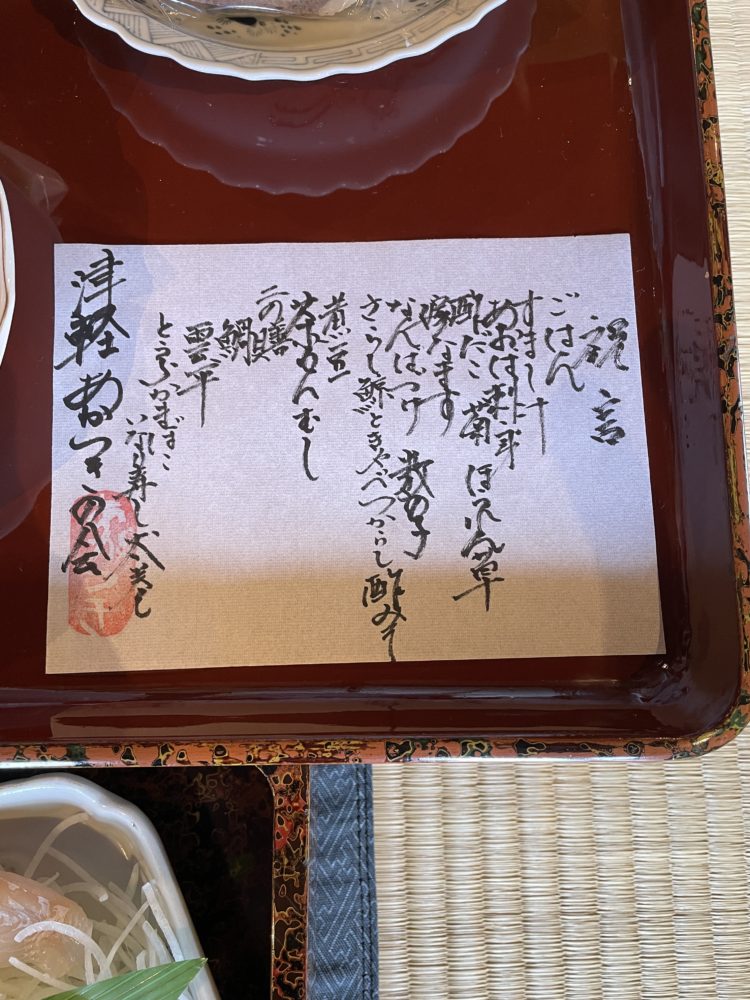 祝言
ごはん
すまし汁
あおは刺身
酢だこ 菊 ほうれん草
なます
なんばつけ 数の子
さらし鯨ときゃべつからし酢みそ
煮豆
茶わんむし
二の膳
鯛
雲平
とうふかまぼこ
いなり寿し
津軽あかつきの会